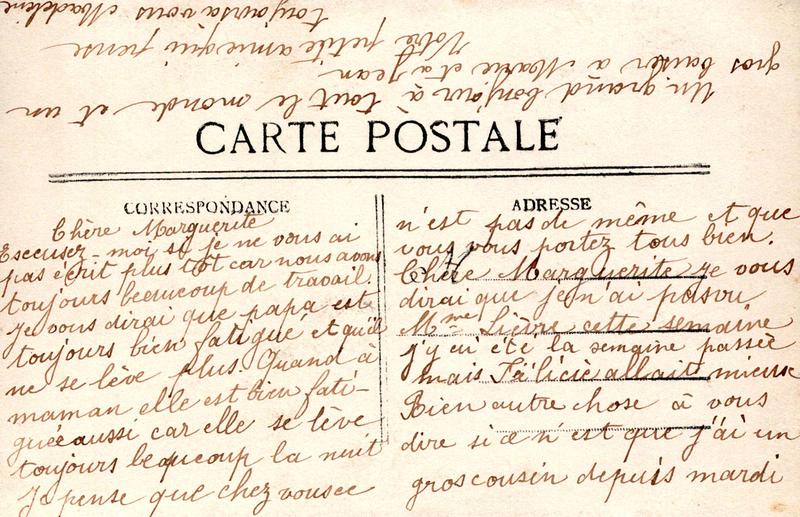 CARTE POSTALE
CORRESPONDANCE
Chère Marguerite
Escecusez-moi si je ne vous ai
pas écrit plus tôt car nous avons
toujours beaucoup de travail.
Je vous dirai que papa est
toujours bien fatigué et qu'il
ne se lève plus. Quand à
maman elle est bien fati-
guée aussi car elle se lève
toujours beaucoup la nuit
Je pense que chez vous ce
ADRESSE
n'est pas de même et que
vous vous portez tous bien.
Chère Marguerite je vous
dirai que je n'ai pas vu
Mme Lièvre cette semaine
j'y ai été la semaine passée
mais Félicie allait mieux
Bien autre chose à vous
dire si ce n'est que j'ai un
gros cousin depuis mardi
Un grand bonjour à tout le monde et un
gros baiser à Marie et à Jean
Votre petite amie qui pense
toujours à vous Madeleine